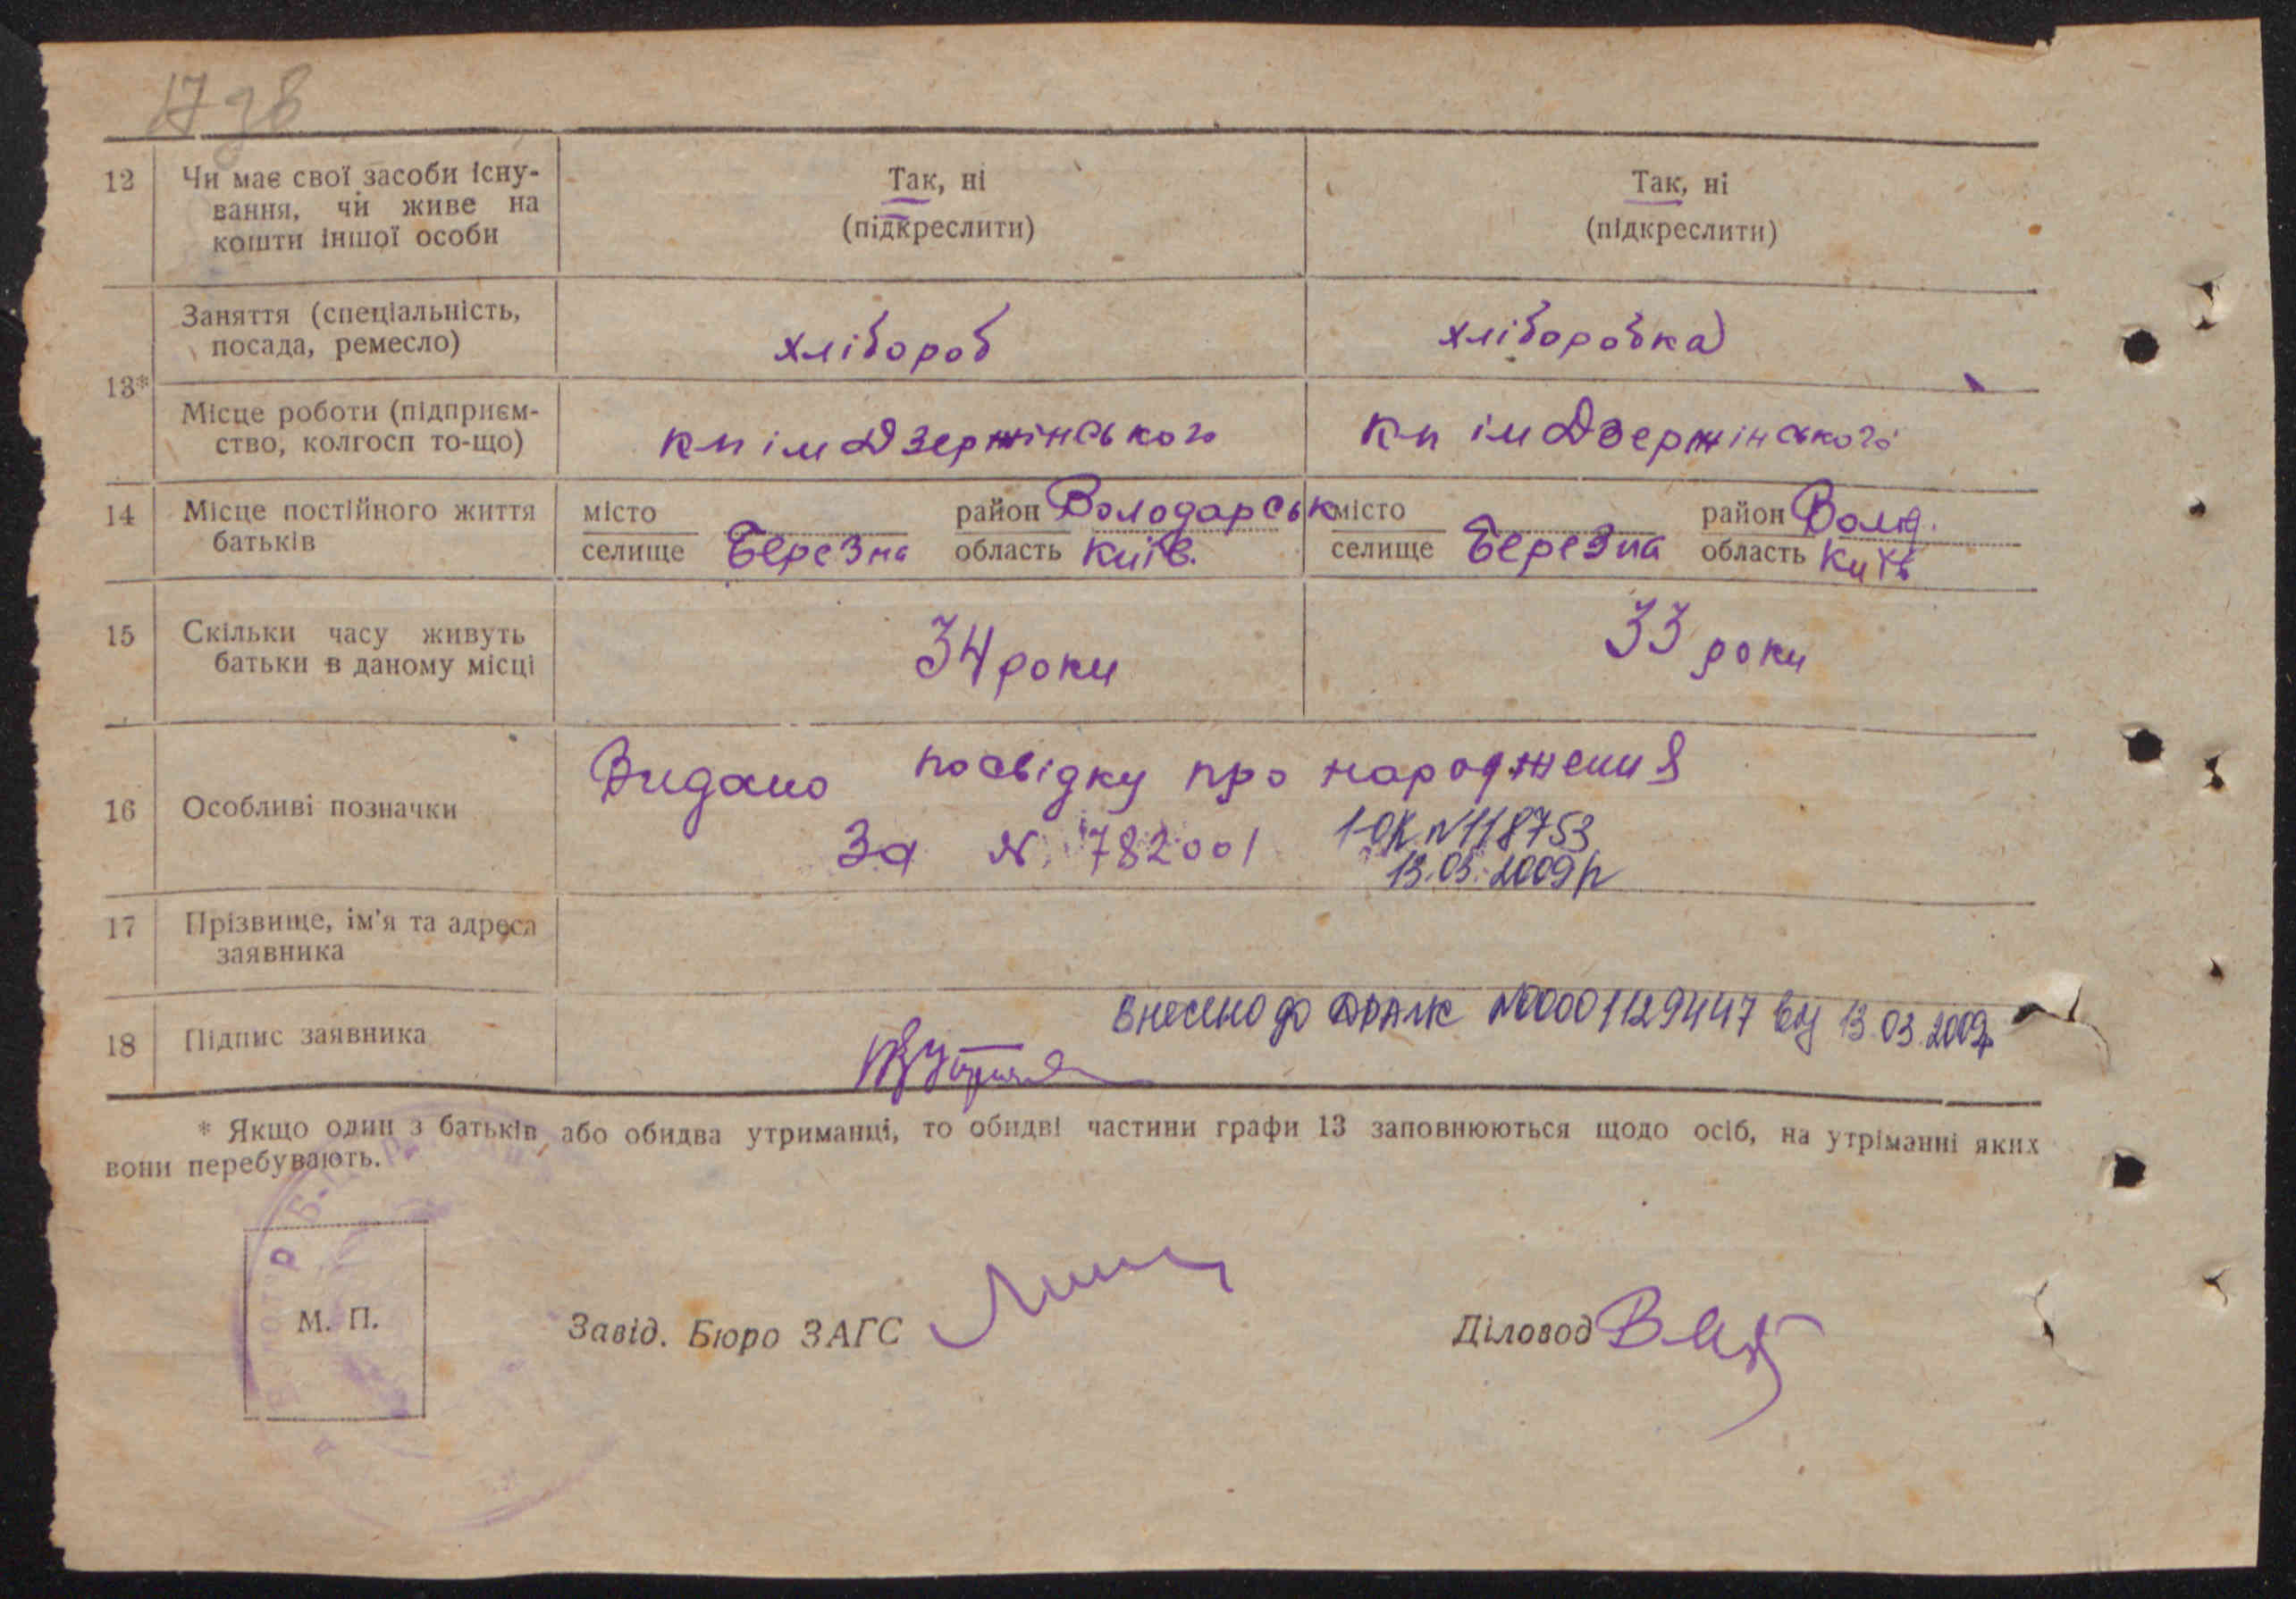 17 зв
12 Чи має свої засоби існу- Так, ні Так, ні
вання, чи живе на (підкреслити) (підкреслити)
кошти іншої особи
Заняття (спеціальність, хлібороб хліборобка
посада, ремесло)
13*
Місце роботи (підприєм- кп ім Дзержінського кп ім Дзержінського
ство, колгосп то-що)
14 Місце постійного життя місто район Володарськ місто район Волод.
батьків селище Березна область Київ. селище Березна область Київ
15 Скільки часу живуть 34 роки 33 роки
батьки в даному місці
Видано посвідку про народження
16 Особливі позначки
За № 782001 1-ОК №118753
13.03.2009р
17 Прізвище, ім'я та адреса
заявника
Внесено до ДРАЦС №00001129447 від 13.03.2009р
18 Підпис заявника
* Якщо один з батьків або обидва утриманці, то обидві частини графи 13 заповнюються щодо осіб, на утріманні яких
вони перебувають.
М. П.
Завід. Бюро ЗАГС Діловод